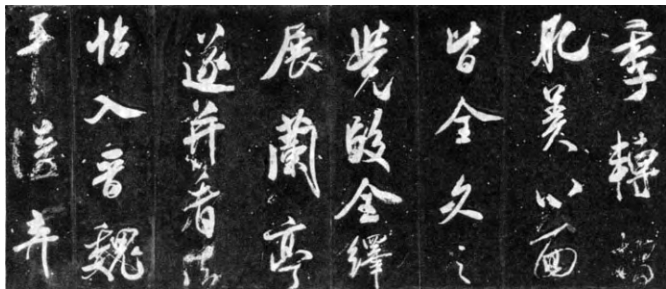 季轉折
肥美八面
皆全久之
覺段全繹
展蘭亭
遂并看法
帖入晋魏
平淡弃